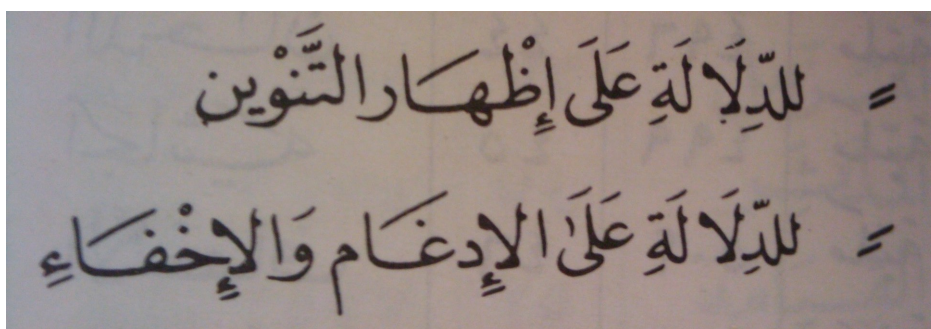 ـً للدِّلَالَةِ عَلَى إِظْهَار التَّنْوِين
ـࣰ للدِّلَالَةِ عَلَىٰ الإِدغَام وَالإِخْفَاءِ